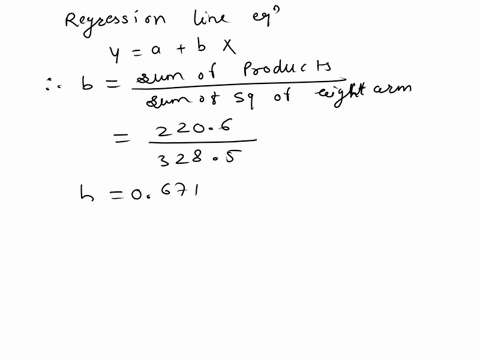 Regression line eqn
y = a + b X
∴ b = sum of Products / sum of sq of right arm
= 220.6 / 328.5
b = 0.671